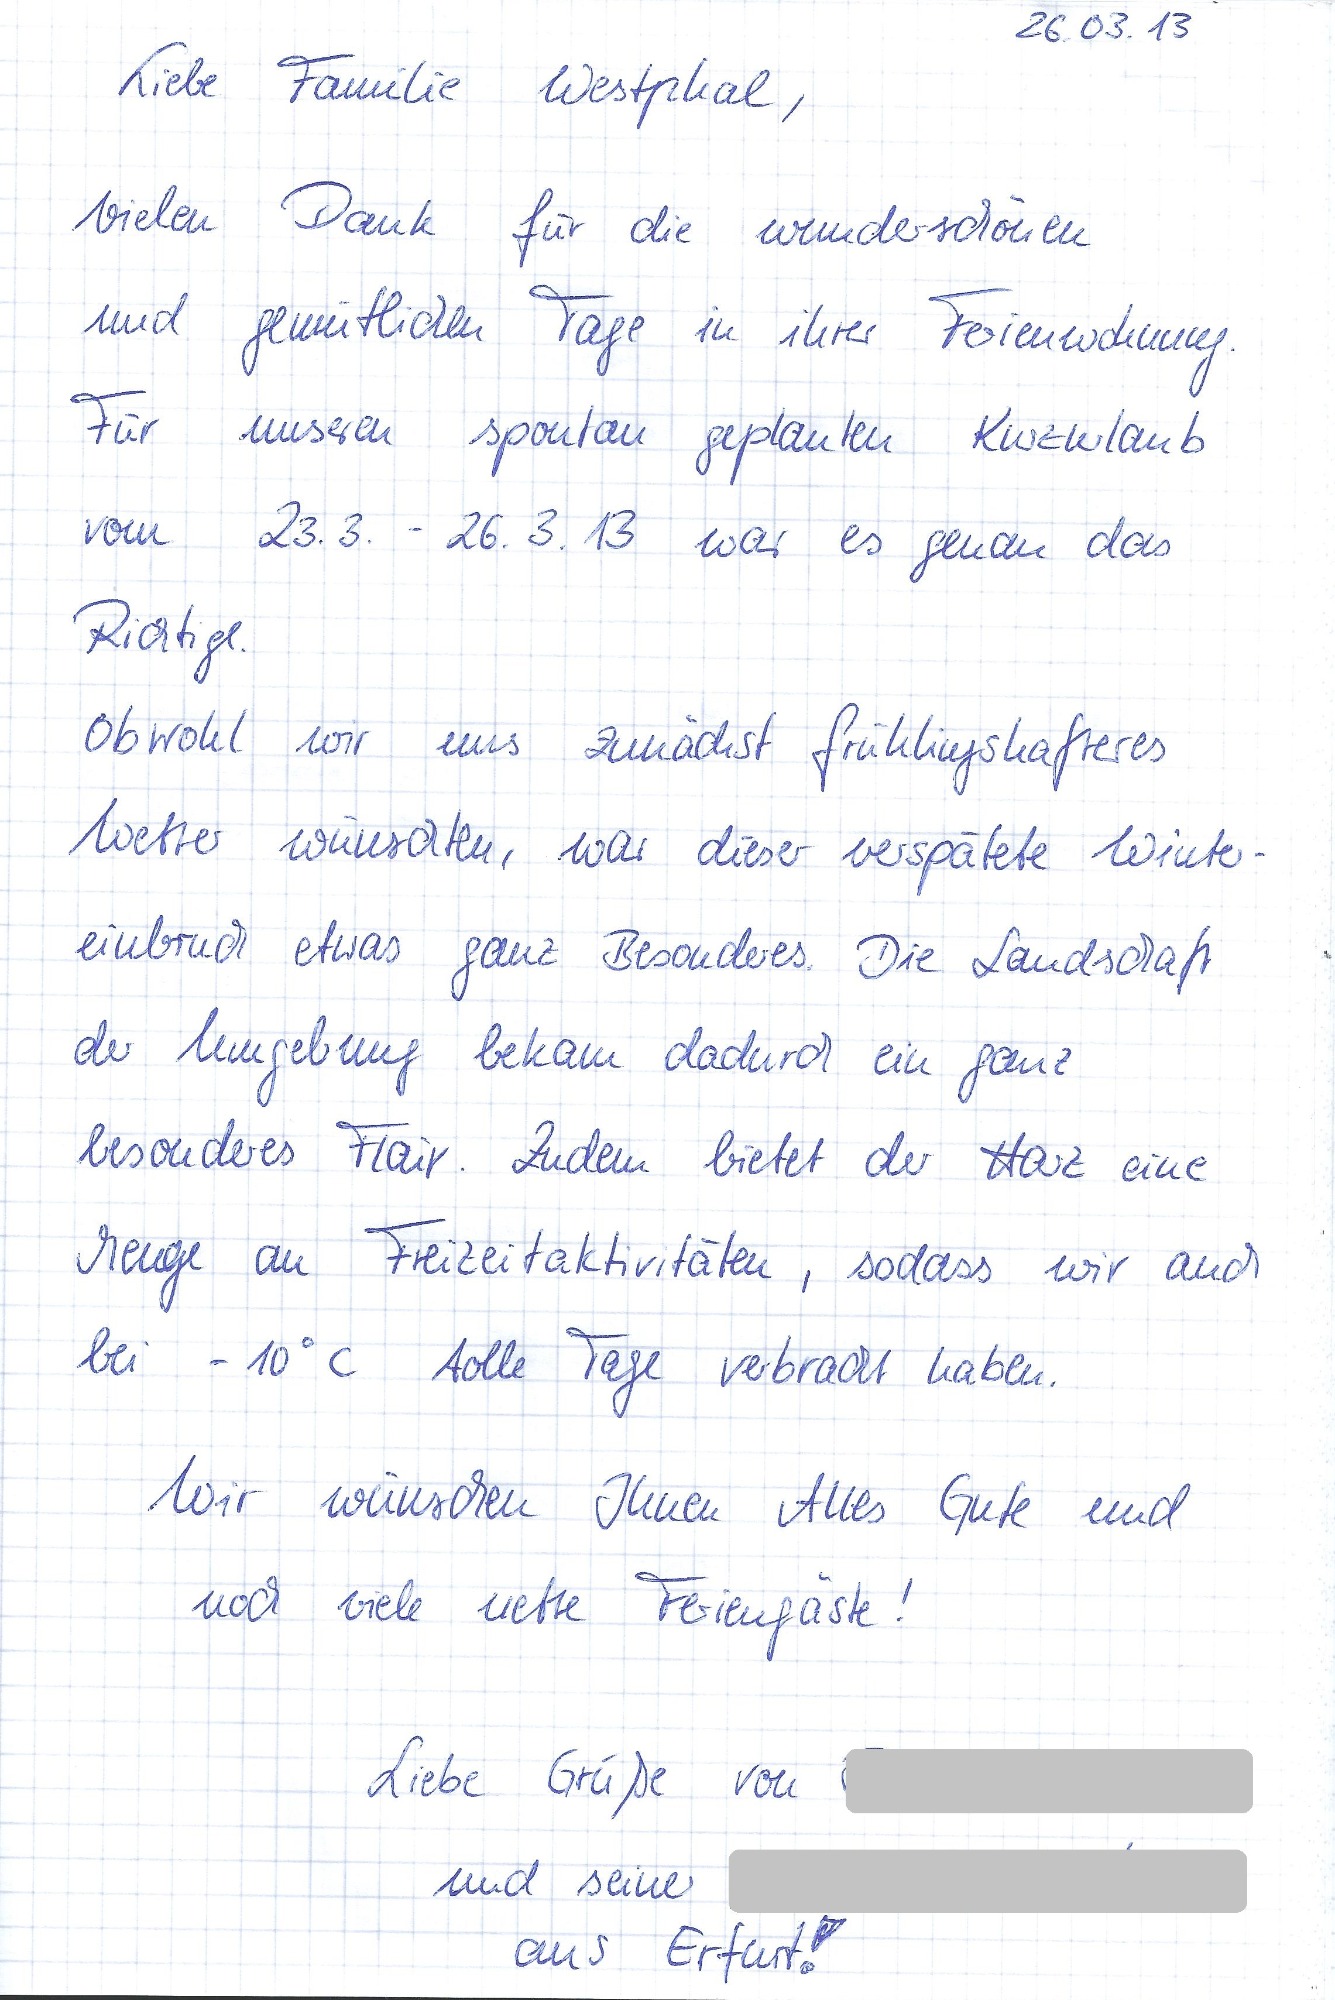 26.03.13
Liebe Familie Westphal,
vielen Dank für die wunderschönen
und gemütlichen Tage in ihrer Ferienwohnung.
Für unseren spontan geplanten Kurzurlaub
vom 23.3. - 26.3.13 war es genau das
Richtige.
Obwohl wir uns zunächst frühlingshafteres
Wetter wünschten, war dieser verspätete Winter-
einbruch etwas ganz Besonderes. Die Landschaft
der Umgebung bekam dadurch ein ganz
besonderes Flair. Zudem bietet der Harz eine
Menge an Freizeitaktivitäten, sodass wir auch
bei -10°C tolle Tage verbracht haben.
Wir wünschen Ihnen Alles Gute und
noch viele nette Feriengäste!
Liebe Grüße von
und seiner
aus Erfurt!